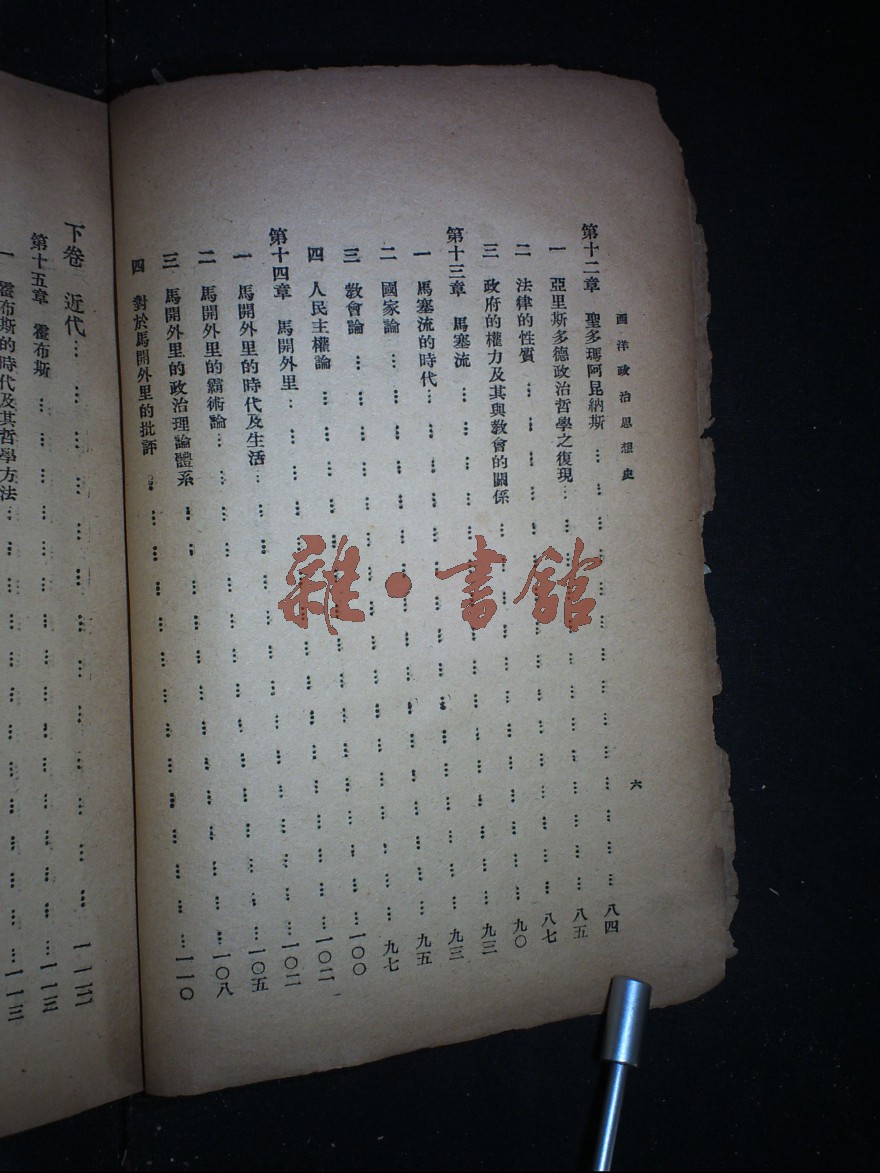 西洋政治思想史 六
第十二章 聖多瑪阿昆納斯 … … … … … … … … … … 八四
一 亞里斯多德政治哲學之復現 … … … … … … … … … 八五
二 法律的性質 … … … … … … … … … … … 八七
三 政府的權力及其與教會的關係 … … … … … … … … 九〇
第十三章 馬塞流 … … … … … … … … … … … 九三
一 馬塞流的時代 … … … … … … … … … … … 九三
二 國家論 … … … … … … … … … … … … 九五
三 教會論 … … … … … … … … … … … … 九七
四 人民主權論 … … … … … … … … … … … 一〇〇
第十四章 馬開外里 … … … … … … … … … … 一〇二
一 馬開外里的時代及生活 … … … … … … … … … 一〇二
二 馬開外里的霸術論 … … … … … … … … … … 一〇五
三 馬開外里的政治理論體系 … … … … … … … … … 一〇八
四 對於馬開外里的批評 … … … … … … … … … … 一一〇
下卷 近代 … … … … … … … … … … … … 一一三
第十五章 霍布斯 … … … … … … … … … … … 一一三
一 霍布斯的時代及其哲學方法 … … … … … … … … 一一三
雜·書館